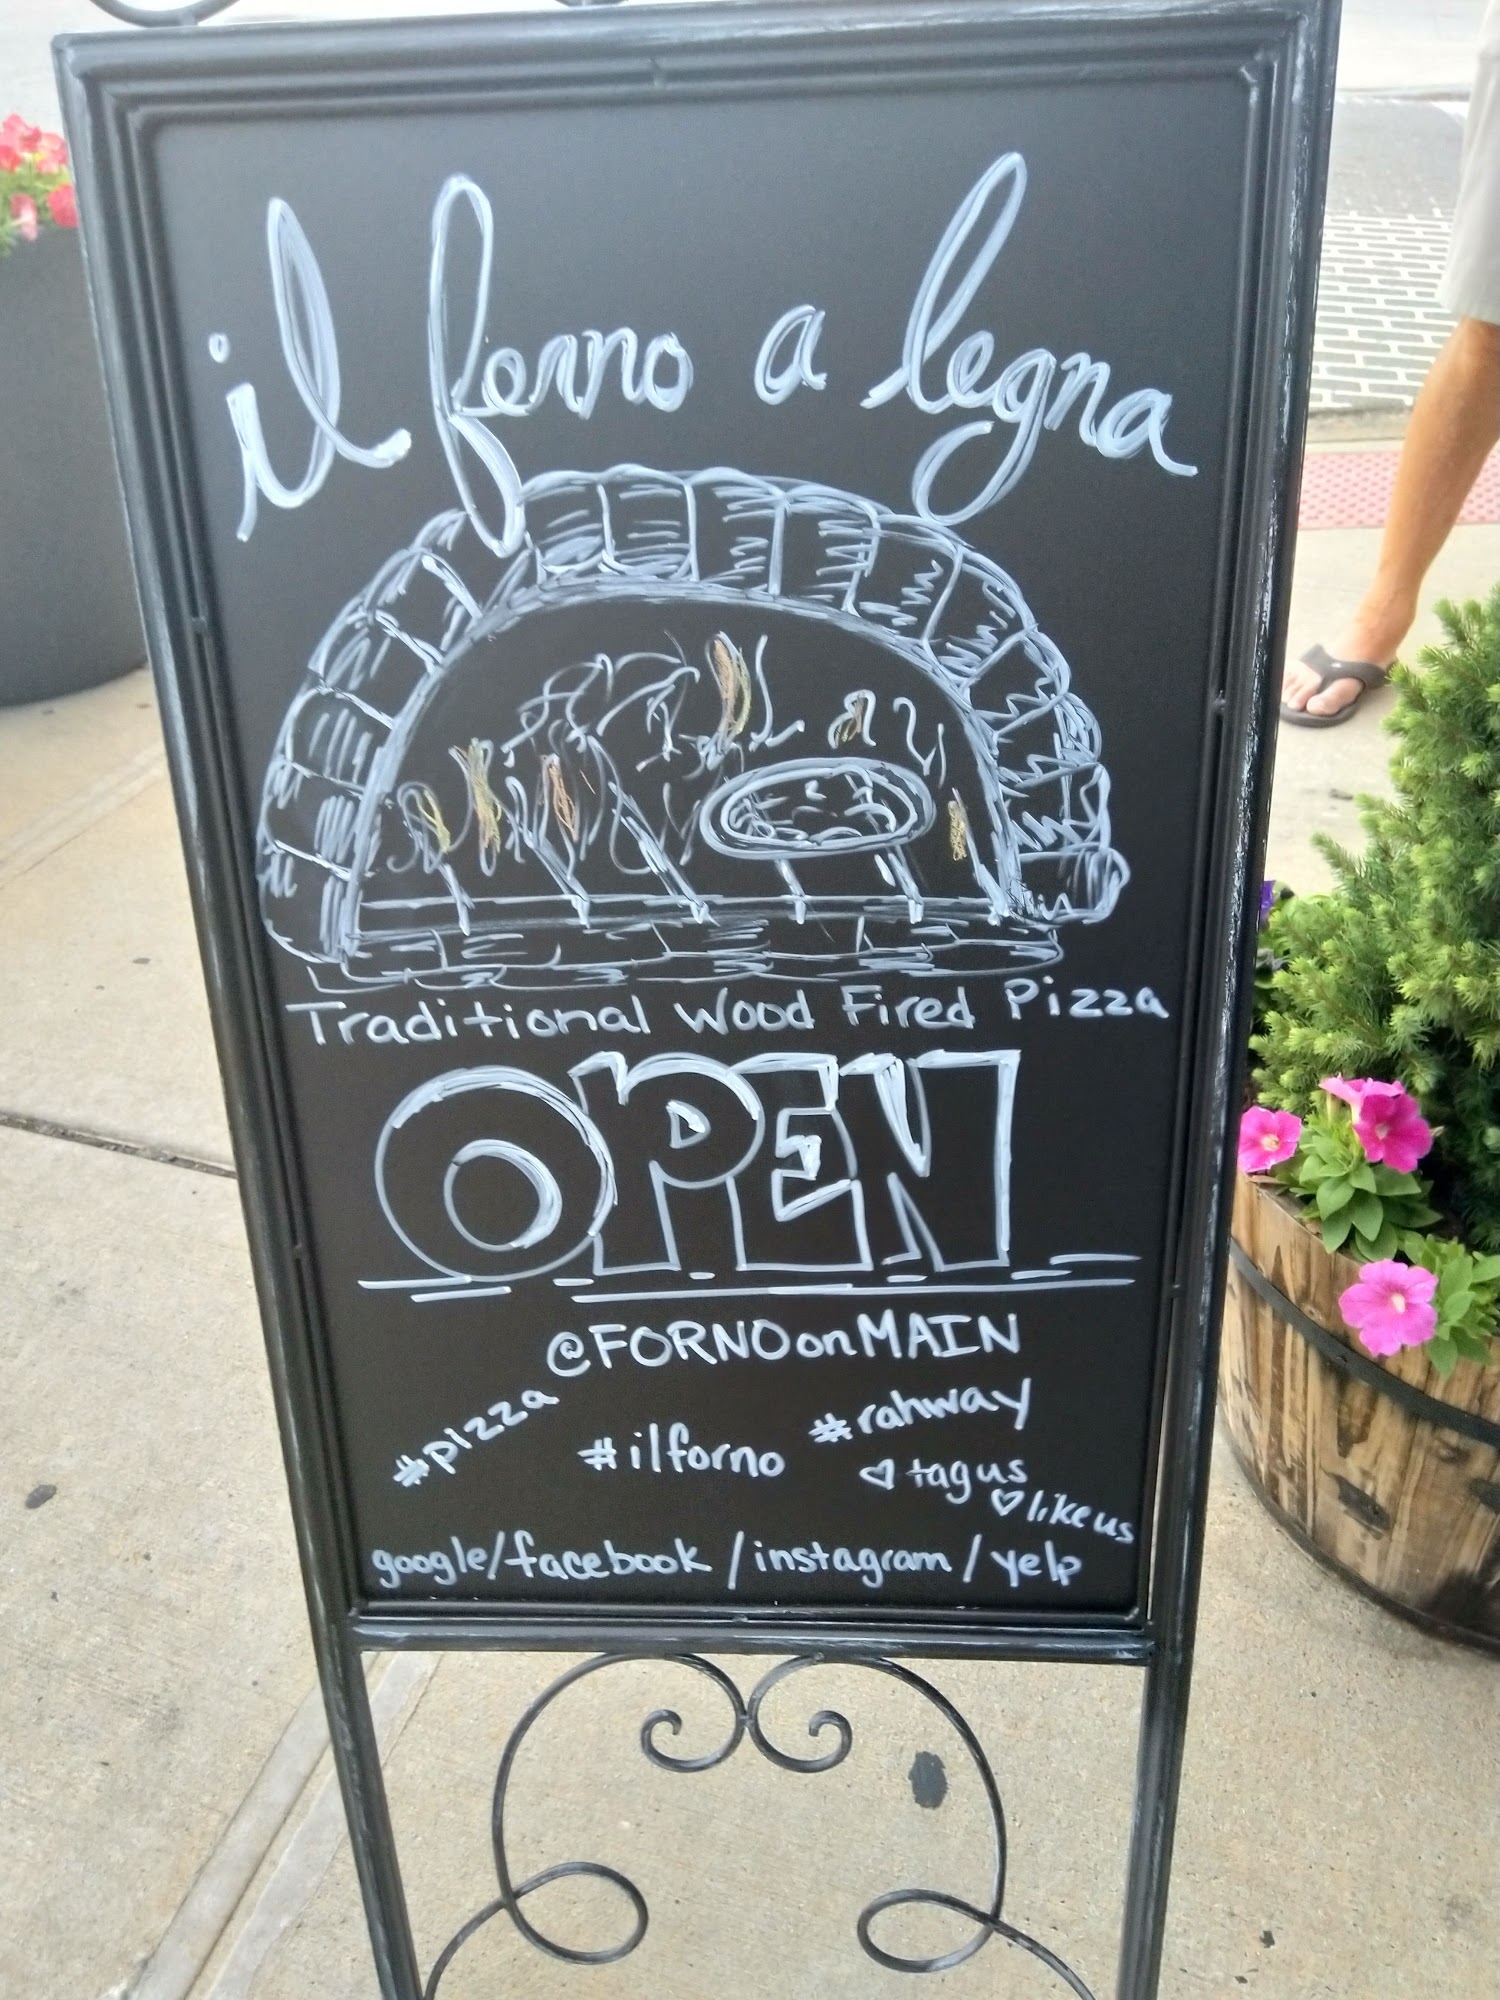 il forno a legna
Traditional Wood Fired Pizza
OPEN
@FORNOonMAIN
#pizza
#ilforno
#rahway
♡ tag us
♡ like us
google/facebook/instagram/yelp